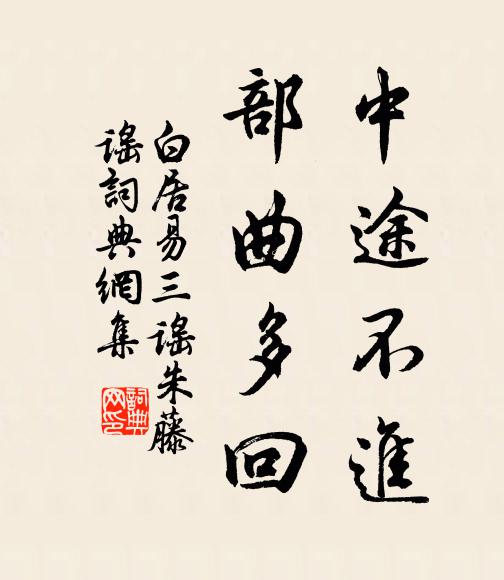 中途不進
部曲多回
白居易三謠朱藤
謠詞典網集
詞典網印